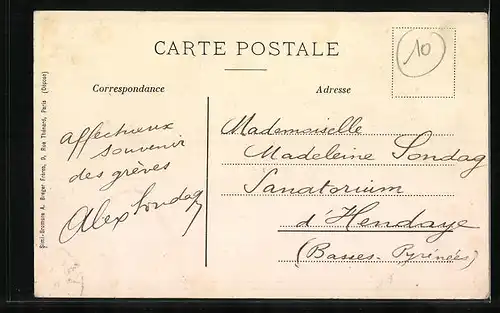 CARTE POSTALE
Correspondance
Adresse
10
affectueux
souvenir
des grèves
Alex Sondag
Mademoiselle
Madeleine Sondag
Sanatorium
d'Hendaye
(Basses-Pyrénées)
Simi-Bromure A. Breger Frères, 9, Rue Thénard, Paris (Déposé)